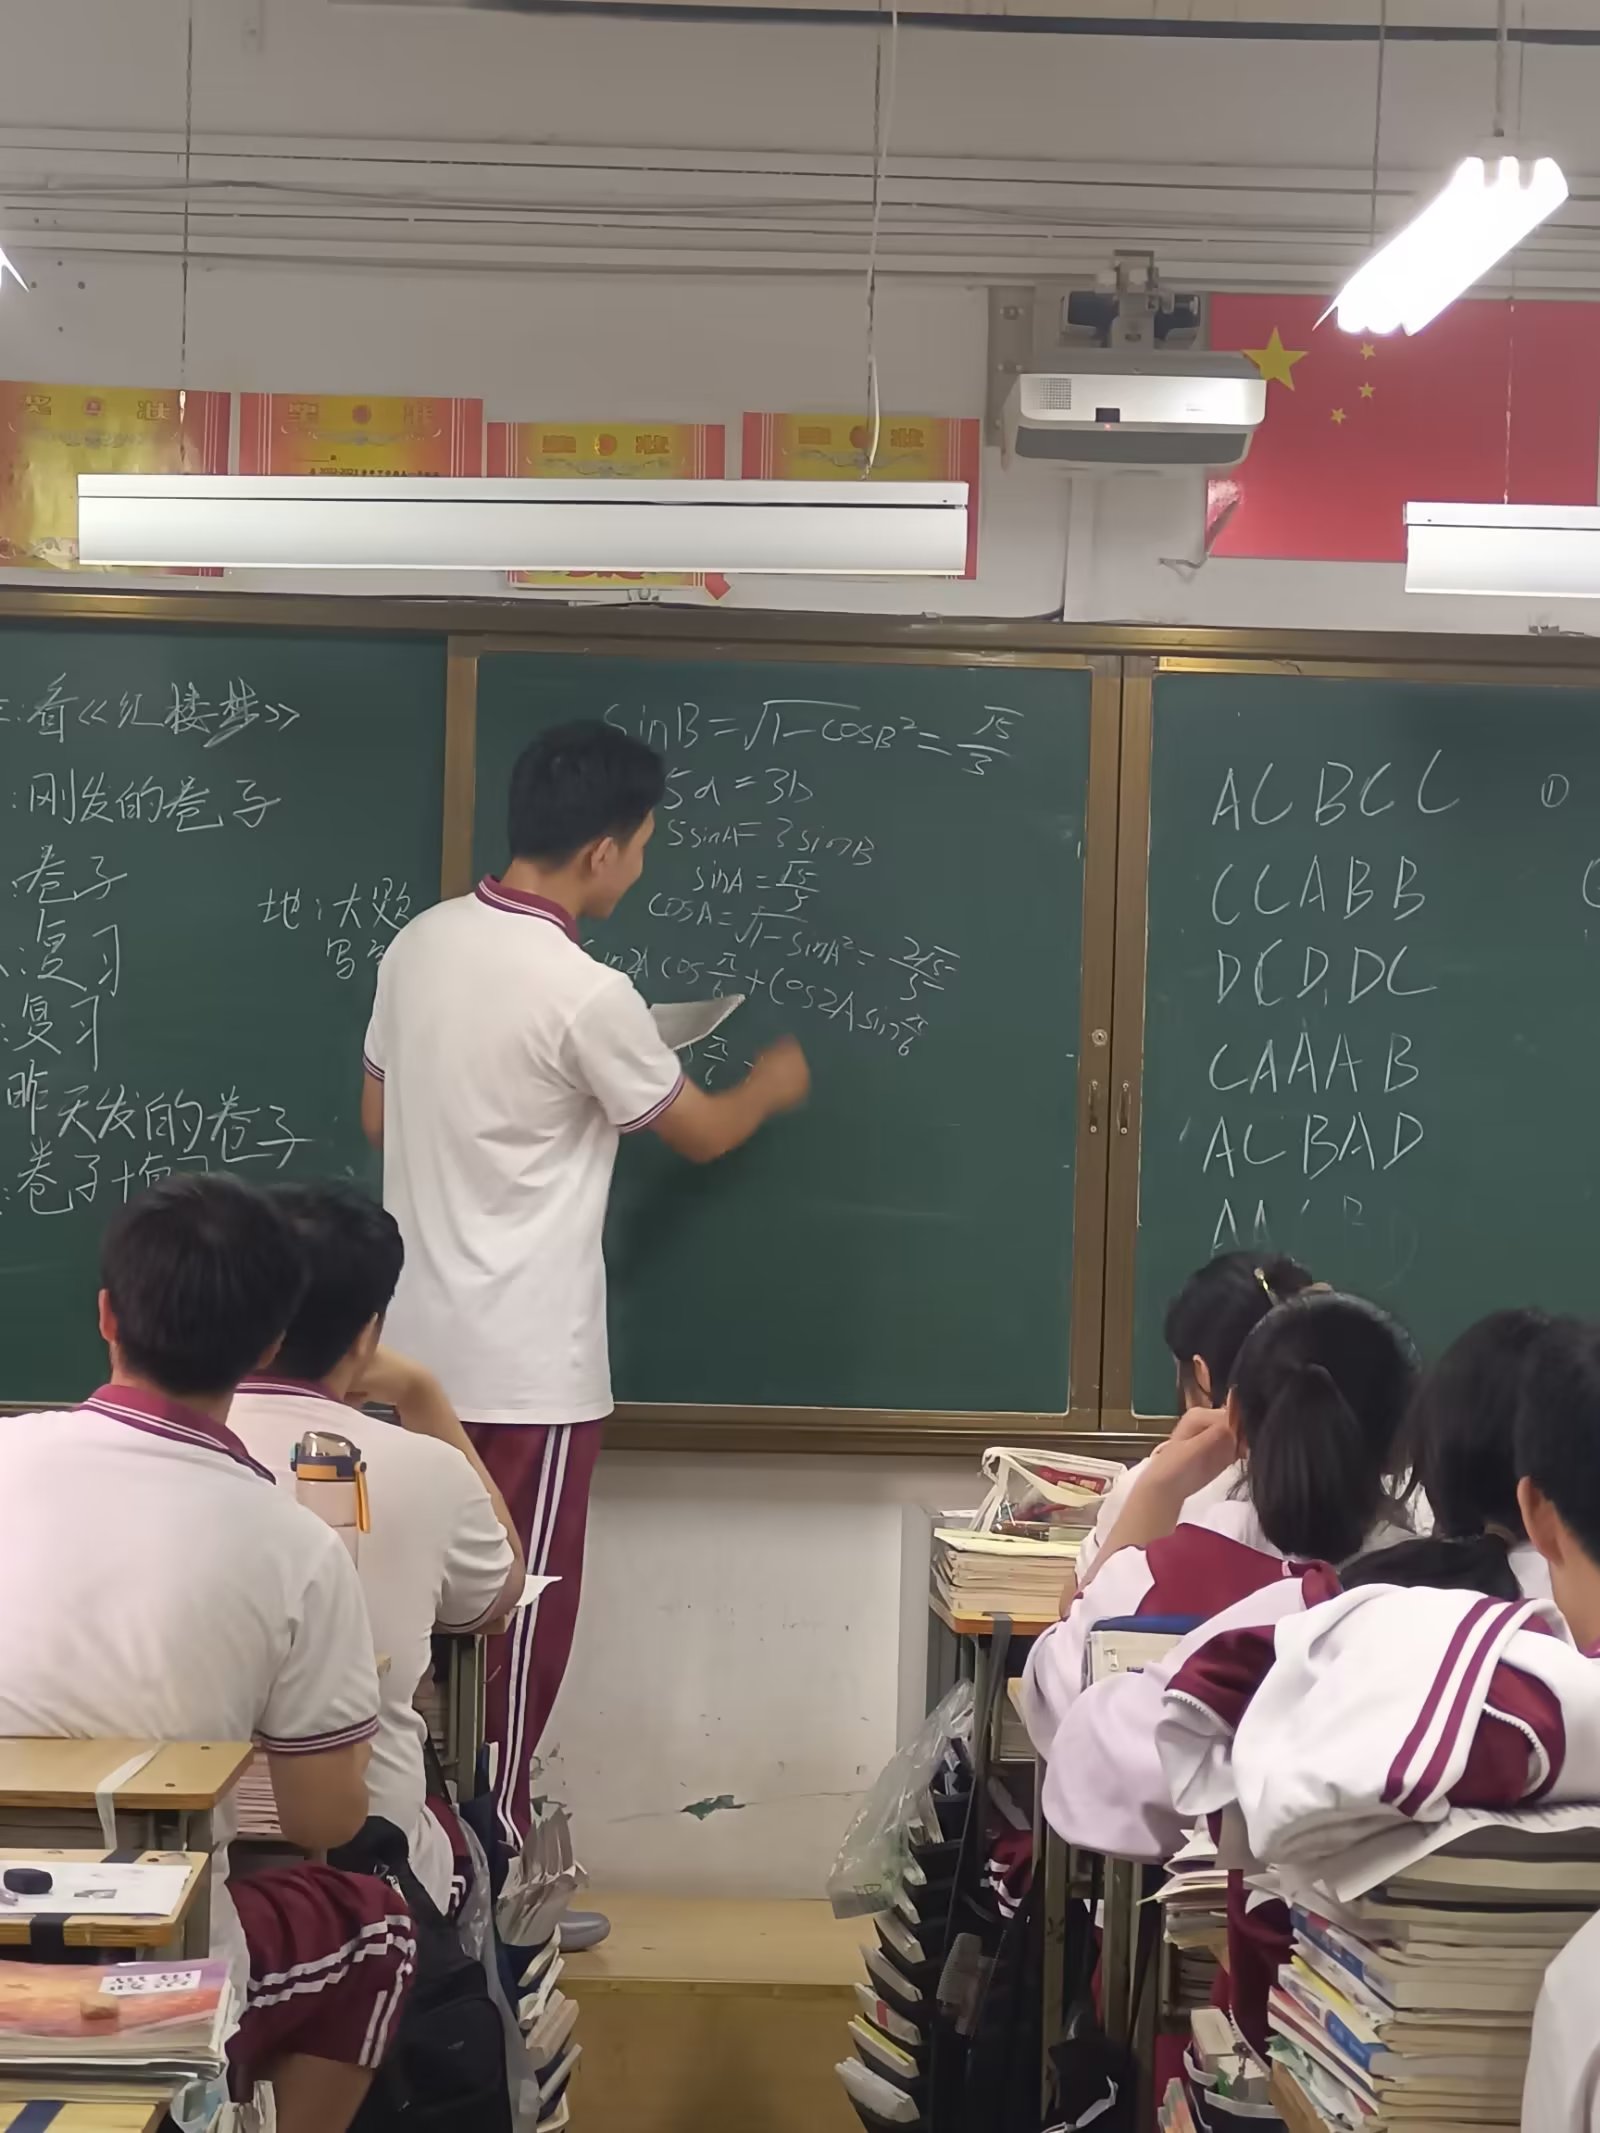 奖 状
奖 状
奖 状
奖 状
:看《红楼梦》
:刚发的卷子
:卷子
:复习
:复习
昨天发的卷子
:卷子+复习
地:大题
写
sinB=√1-cosB²=√5/3
5a=3b
5sinA=3sinB
sinA=√5/5
cosA=√1-sinA²=2√5/5
in2A cos π/6+cos2A sin π/6
π/6
ACBCC
①
CCABB
DCDDC
CAAAB
ACBAD
AA